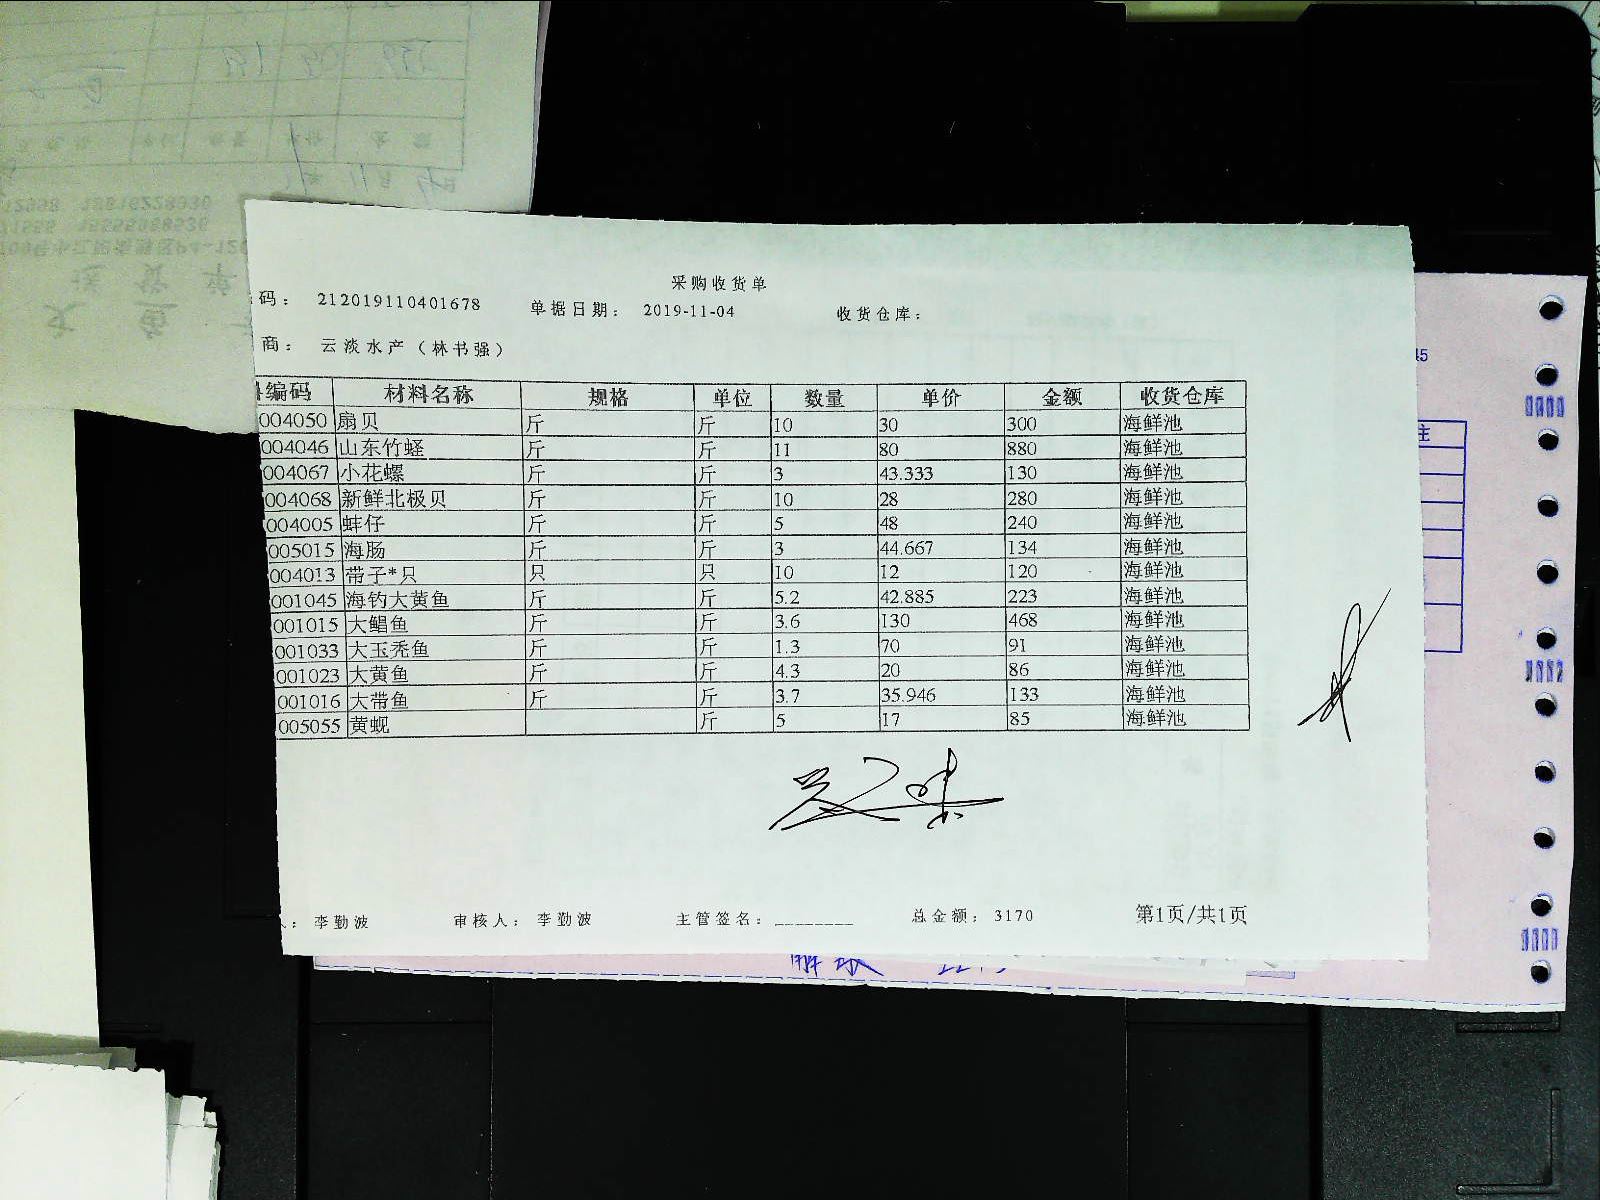 采购收货单
码： 212019110401678 单据日期： 2019-11-04 收货仓库：
商： 云淡水产（林书强）
编码 材料名称 规格 单位 数量 单价 金额 收货仓库
004050 扇贝 斤 斤 10 30 300 海鲜池
004046 山东竹蛏 斤 斤 11 80 880 海鲜池
004067 小花螺 斤 斤 3 43.333 130 海鲜池
004068 新鲜北极贝 斤 斤 10 28 280 海鲜池
004005 蚌仔 斤 斤 5 48 240 海鲜池
005015 海肠 斤 斤 3 44.667 134 海鲜池
004013 带子*只 只 只 10 12 120 海鲜池
001045 海钓大黄鱼 斤 斤 5.2 42.885 223 海鲜池
001015 大鲳鱼 斤 斤 3.6 130 468 海鲜池
001033 大玉秃鱼 斤 斤 1.3 70 91 海鲜池
001023 大黄鱼 斤 斤 4.3 20 86 海鲜池
001016 大带鱼 斤 斤 3.7 35.946 133 海鲜池
005055 黄蚬 斤 5 17 85 海鲜池
：李勤波 审核人：李勤波 主管签名：________ 总金额：3170 第1页/共1页